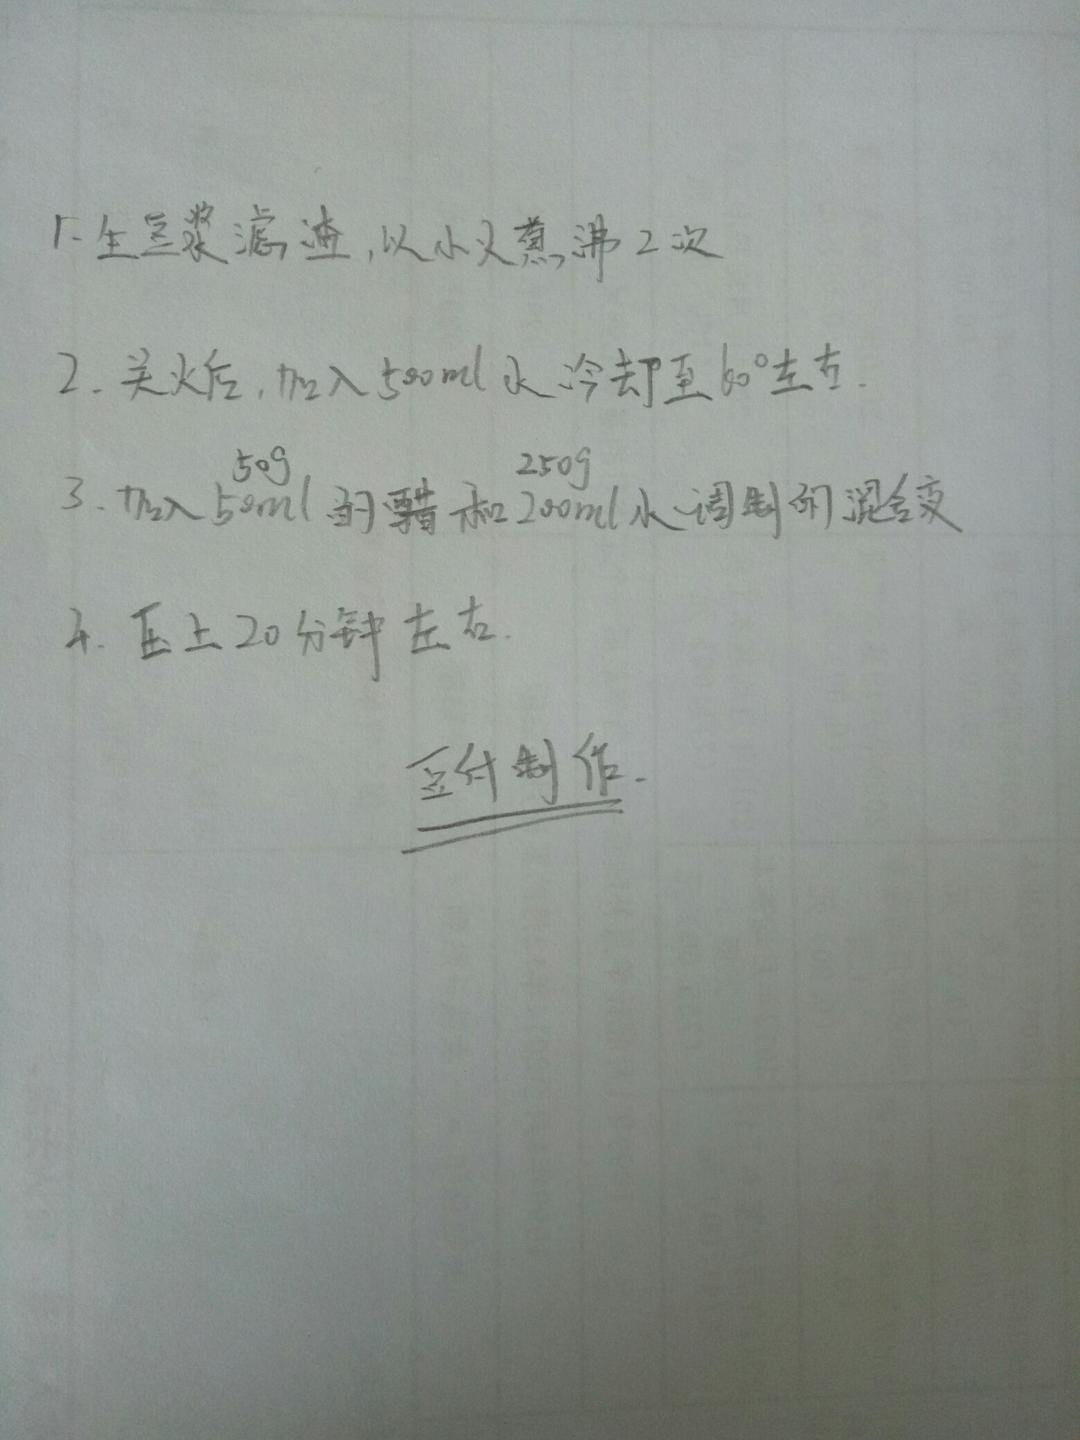 1. 生豆浆滤渣,以小火蒸沸2次
2. 关火后,加入500ml水冷却至60°左右.
50g 250g
3. 加入50ml的醋和200ml水调制的混合
4. 压上20分钟左右.
豆付制作.